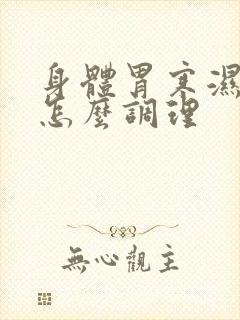 身體胃寒濕
怎麼調理
無心觀主